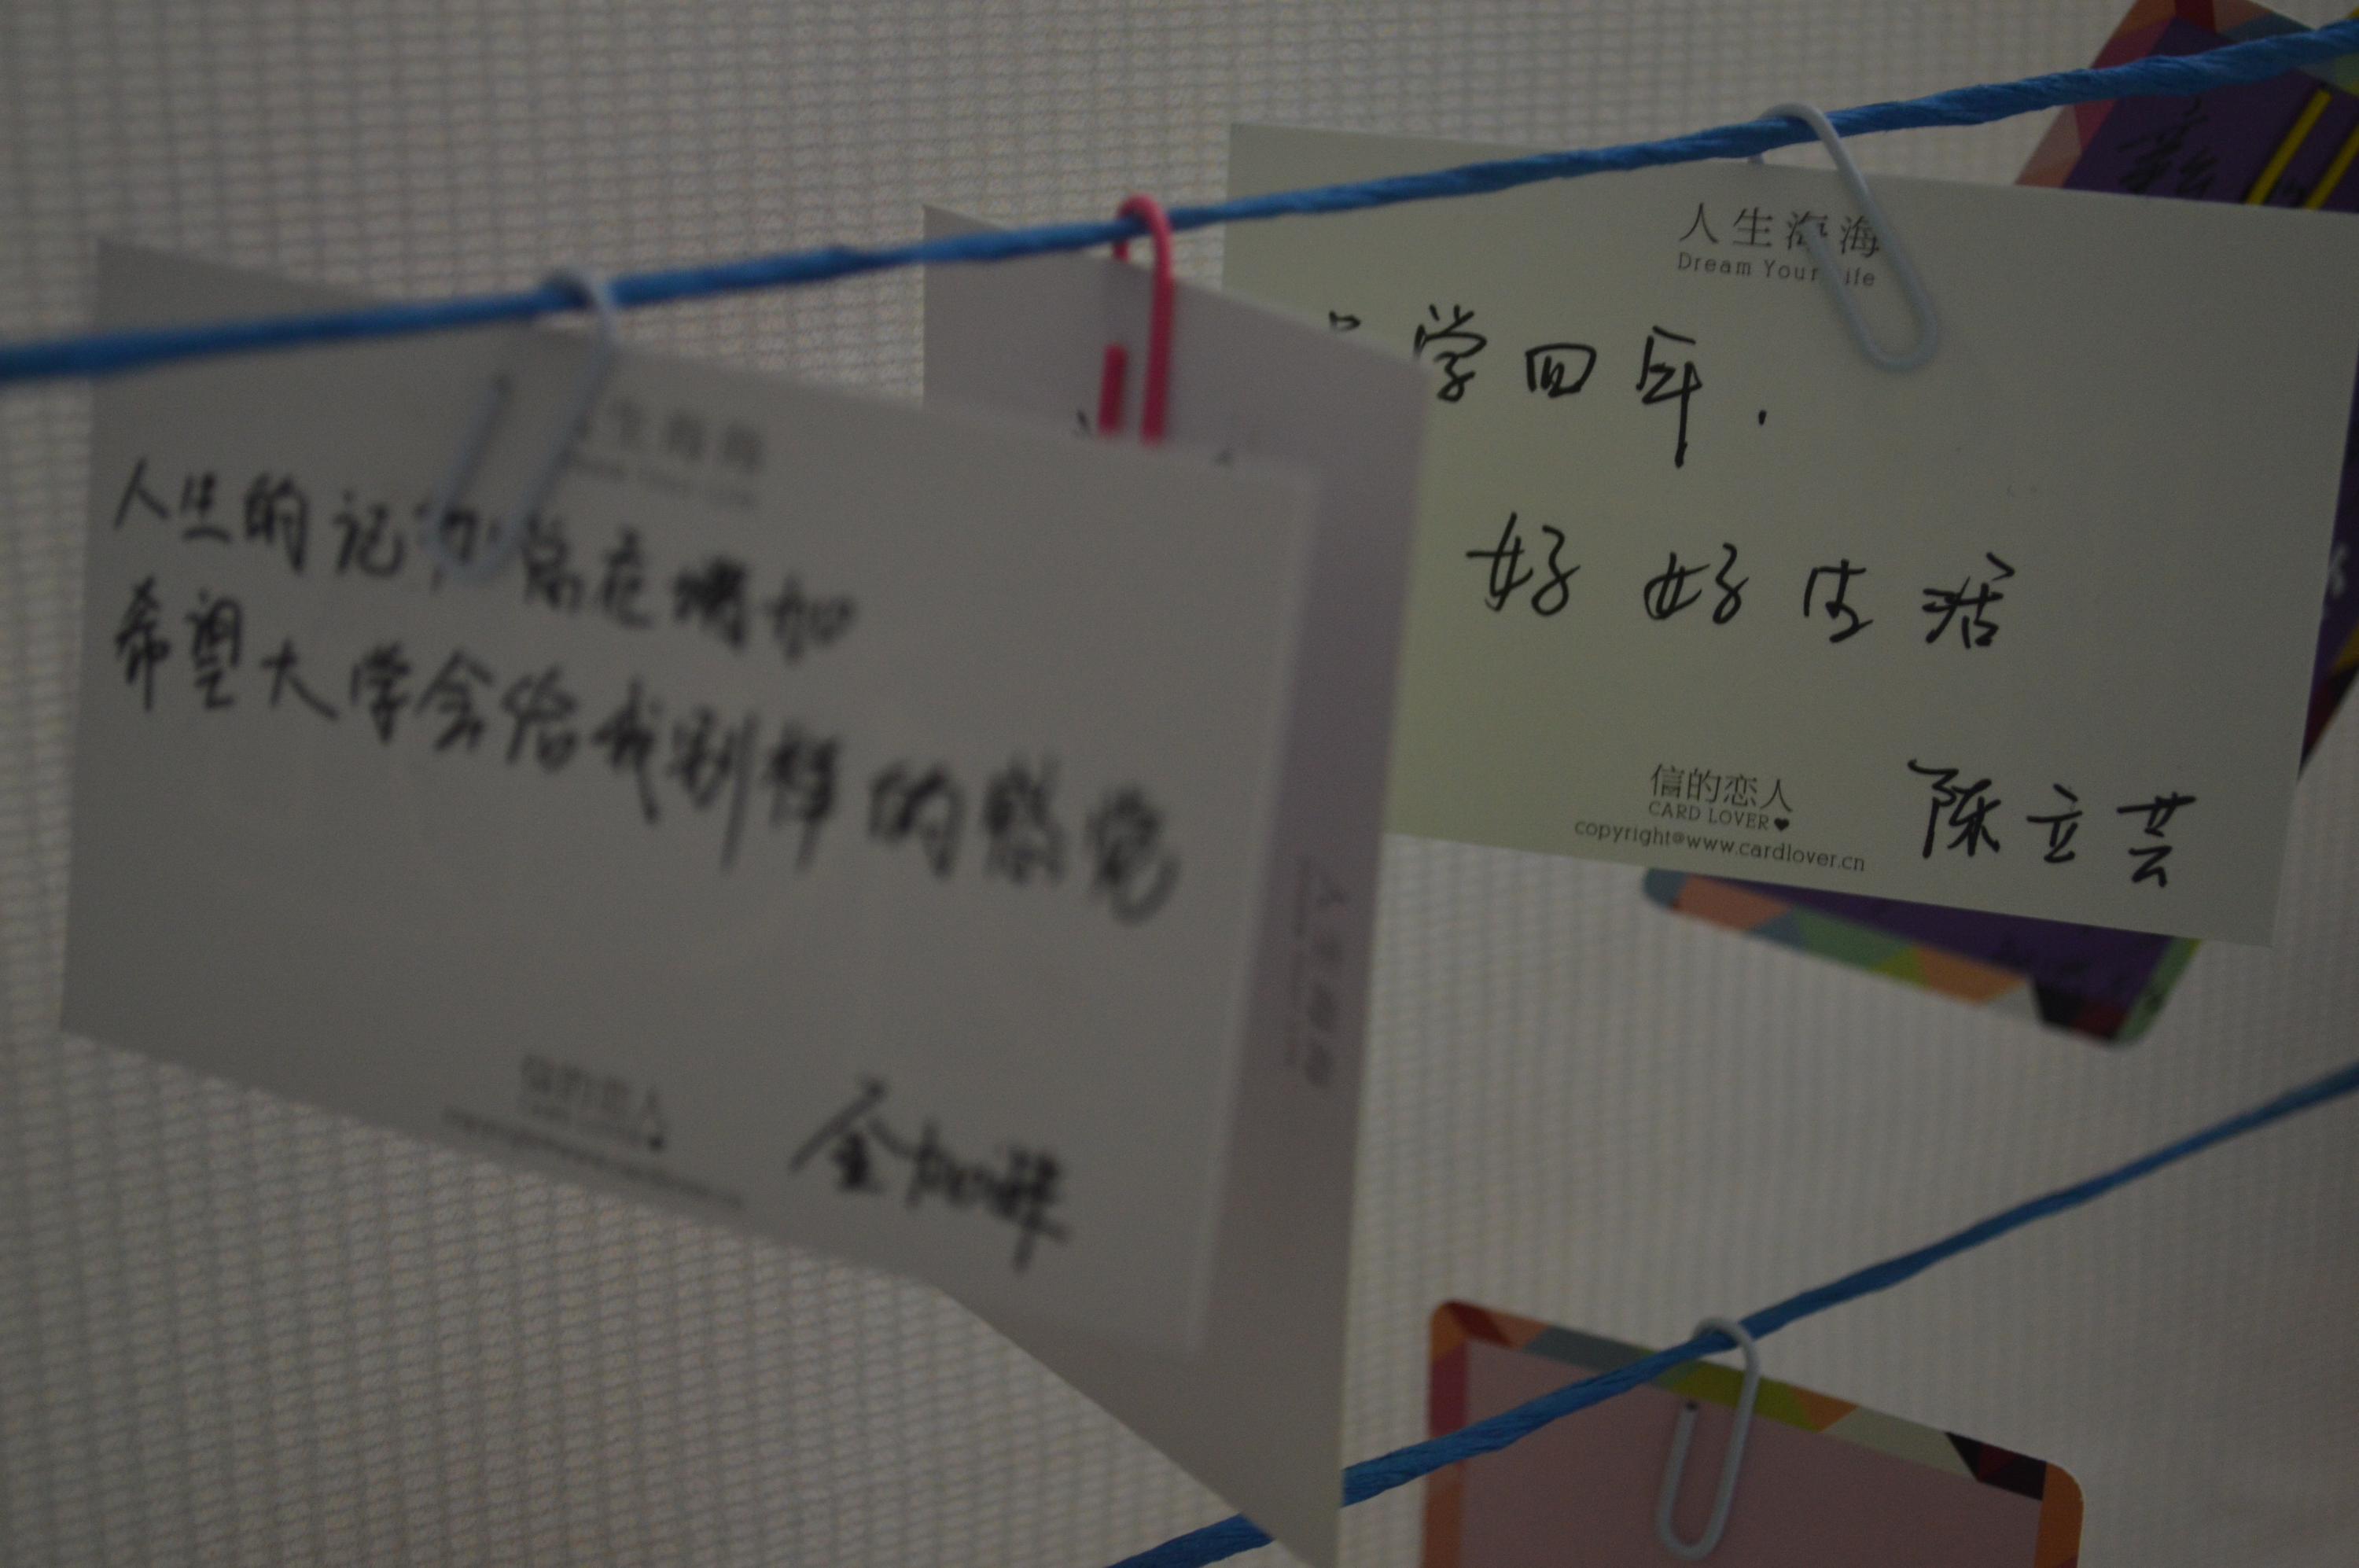 人生的记忆总在增加
希望大学会给我别样的感觉
信的恋人
人生海海
Dream Your Life
学四年.
好好生活
信的恋人
CARD LOVER
copyright@www.cardlover.cn
陈立芸